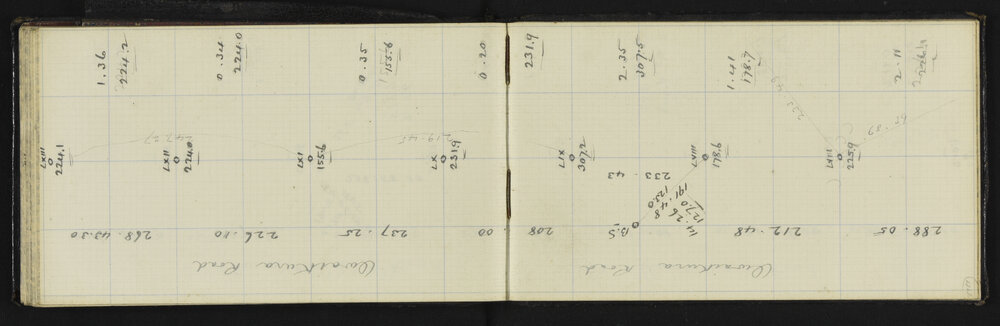 1.36
224.2
0.34
224.0
0.35
155.6
0.20
231.9
2.35
307.5
1.41
178.7
2.11
LXIII
224.1
247.27
LXII
224.0
LXI
155.6
219.45
LX
231.9
LIX
307.2
233.43
LVIII
178.6
235.46
225.9
65.59
B.S
191.48
127.0
268.43.30
226.10
237.25
.00
208
212.48
288.05
Waikura Road
Waikura Road